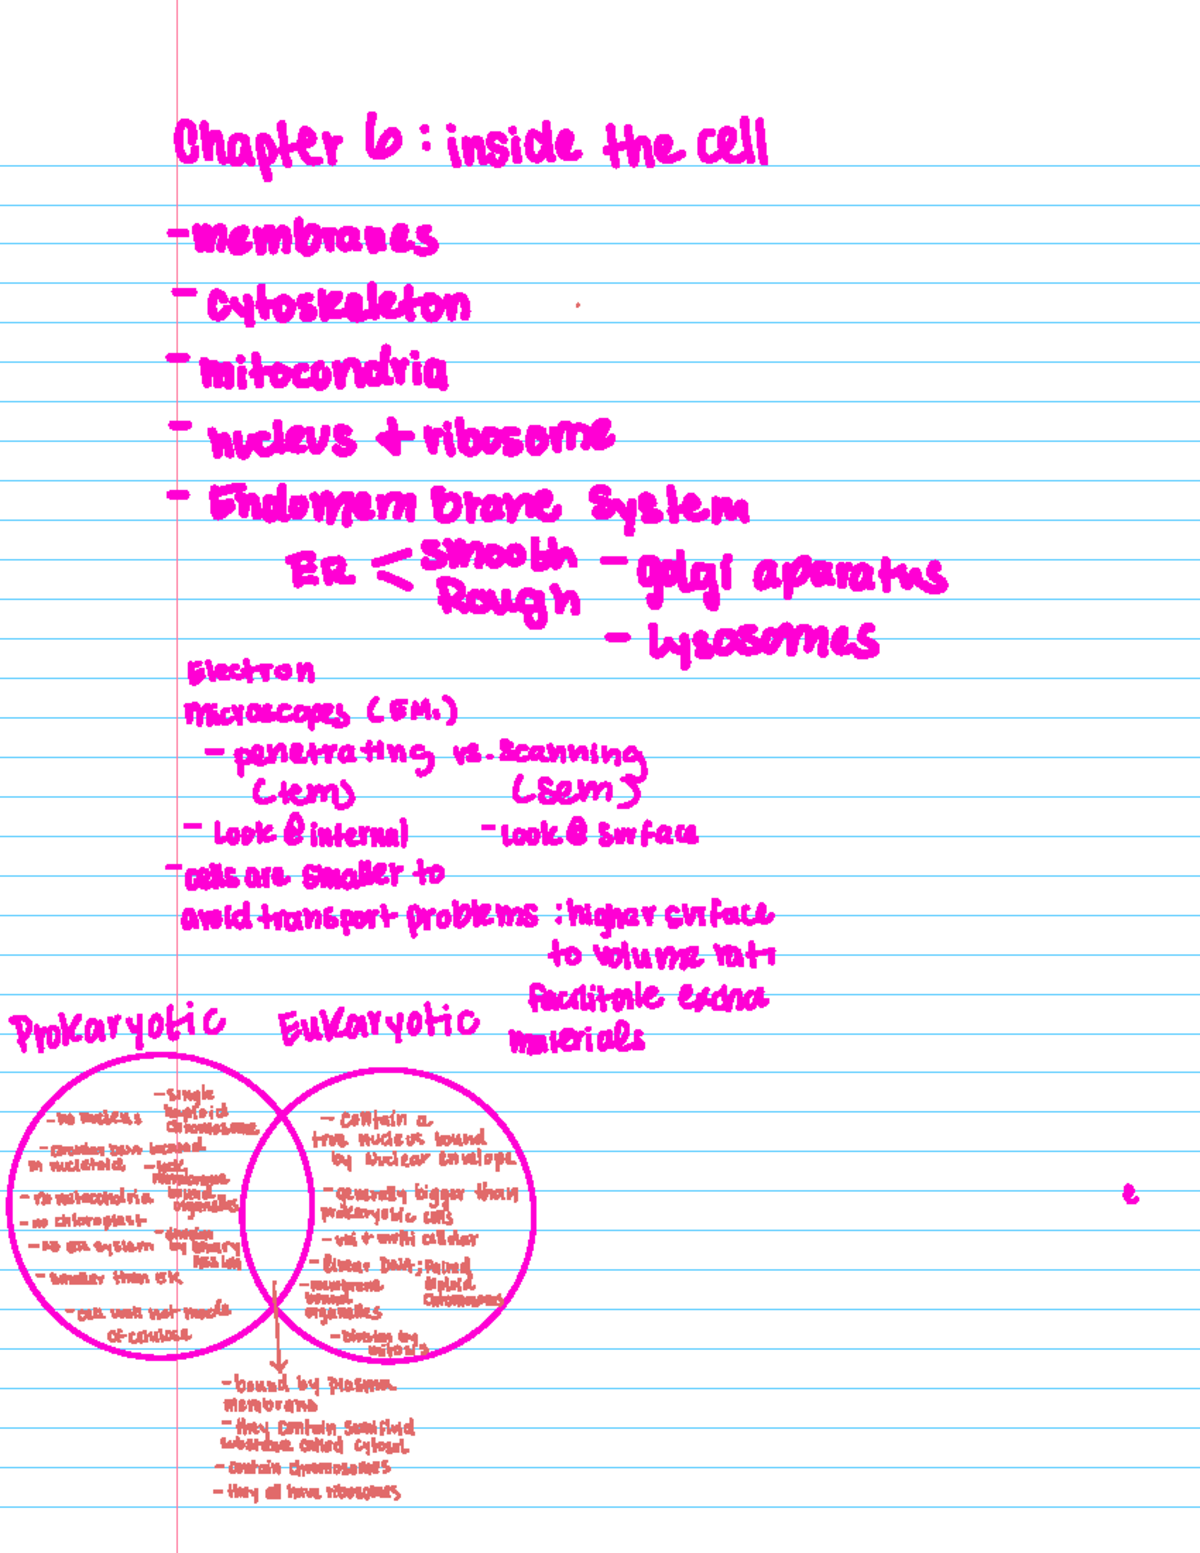 Chapter 6 : inside the cell
- membranes
- cytoskeleton
- mitocondria
- nucleus + ribosome
- Endomembrane System
ER < smooth - golgi aparatus
Rough
- Lysosomes
Electron
microscopes (EM.)
- penetrating vs. scanning
(tem) (sem)
- Look @ internal - Look @ surface
- cells are smaller to
avoid transport problems : higher surface
to volume rati
facilitate excha
materials
Prokaryotic Eukaryotic
- single
haploid
chromosome
- no nucleus
in nucleoid
- lack
membrane
bound
organelles
- no mitocondria
- no chloroplast
- no ER system
- division
by binary
fission
- smaller than EK
- cell wall not made
of celulose
- contain a
true nucleus bound
by Nuclear envelope
- generally bigger than
prokaryotic cells
- uni + multi cellular
- linear DNA; paired
diploid
chromosomes
- membrane
bound
organelles
- Division by
mitosis
- bound by plasma
membrane
- they contain semifluid
substance called cytosol
- contain chromosomes
- they all have ribosomes
e